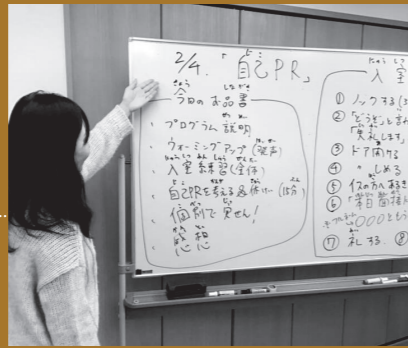 2/4.「自己PR」
今日のお品書
・プログラム説明
・ウォーミングアップ(発声)
・入室練習(全体)
・自己PRを考える (15分)
・個別で実せん!
・感想
入室
① ノックする
② 「どうぞ」と言わ
「失礼します」
③ ドア開ける
④ 〃 しめる
⑤ イスの方へ
⑥ 「本日面接
〇〇〇ともう
⑦ 礼する. ⑧